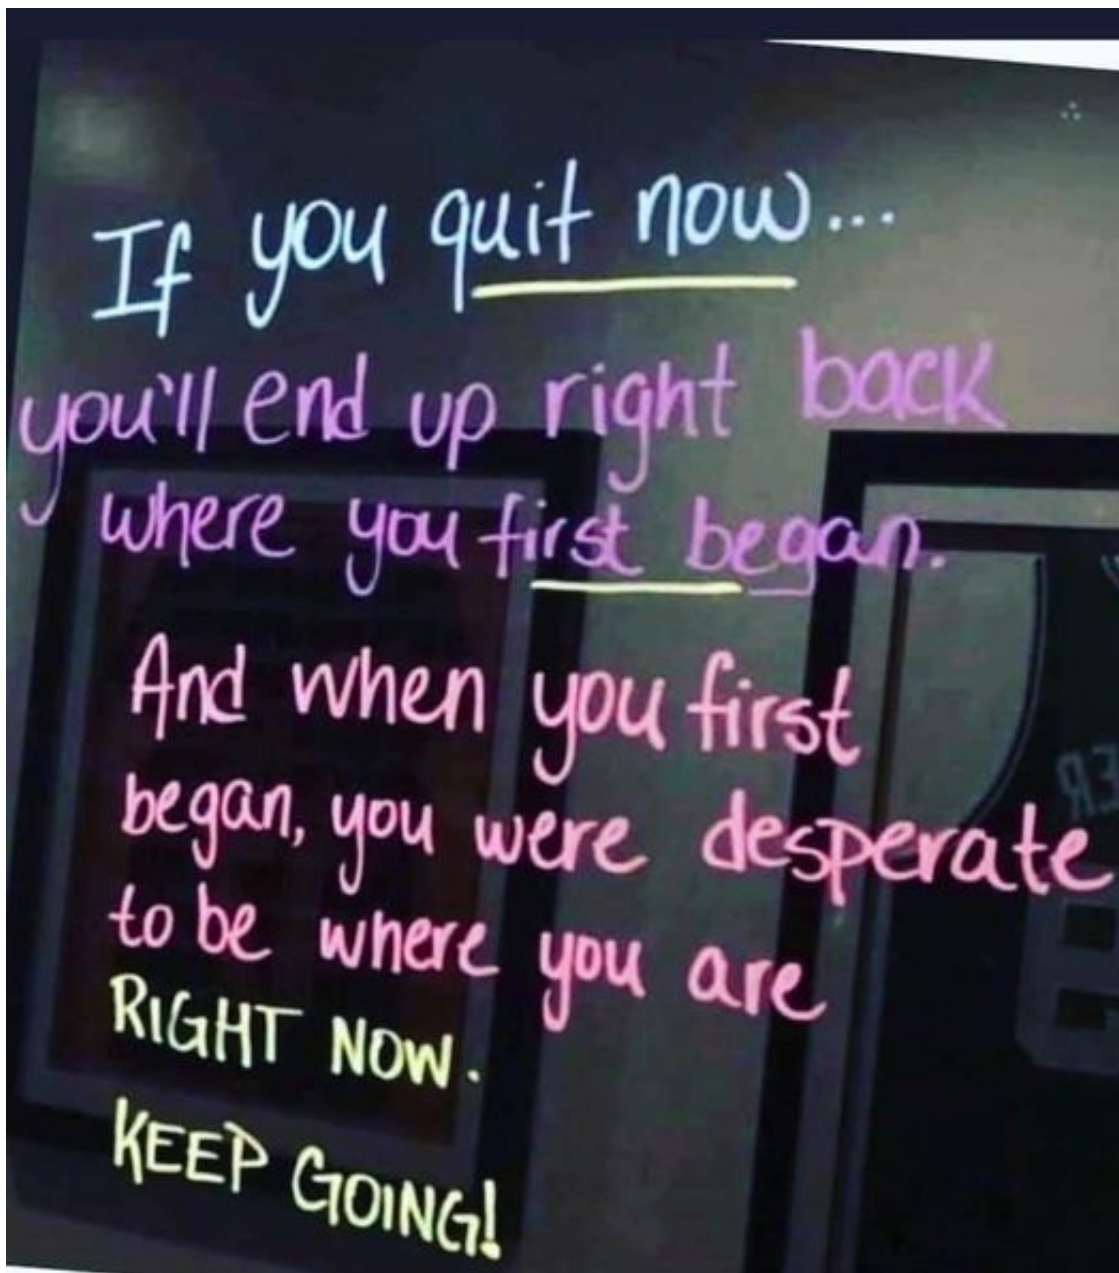 If you quit now...
you'll end up right back
where you first began.
And when you first
began, you were desperate
to be where you are
RIGHT NOW.
KEEP GOING!